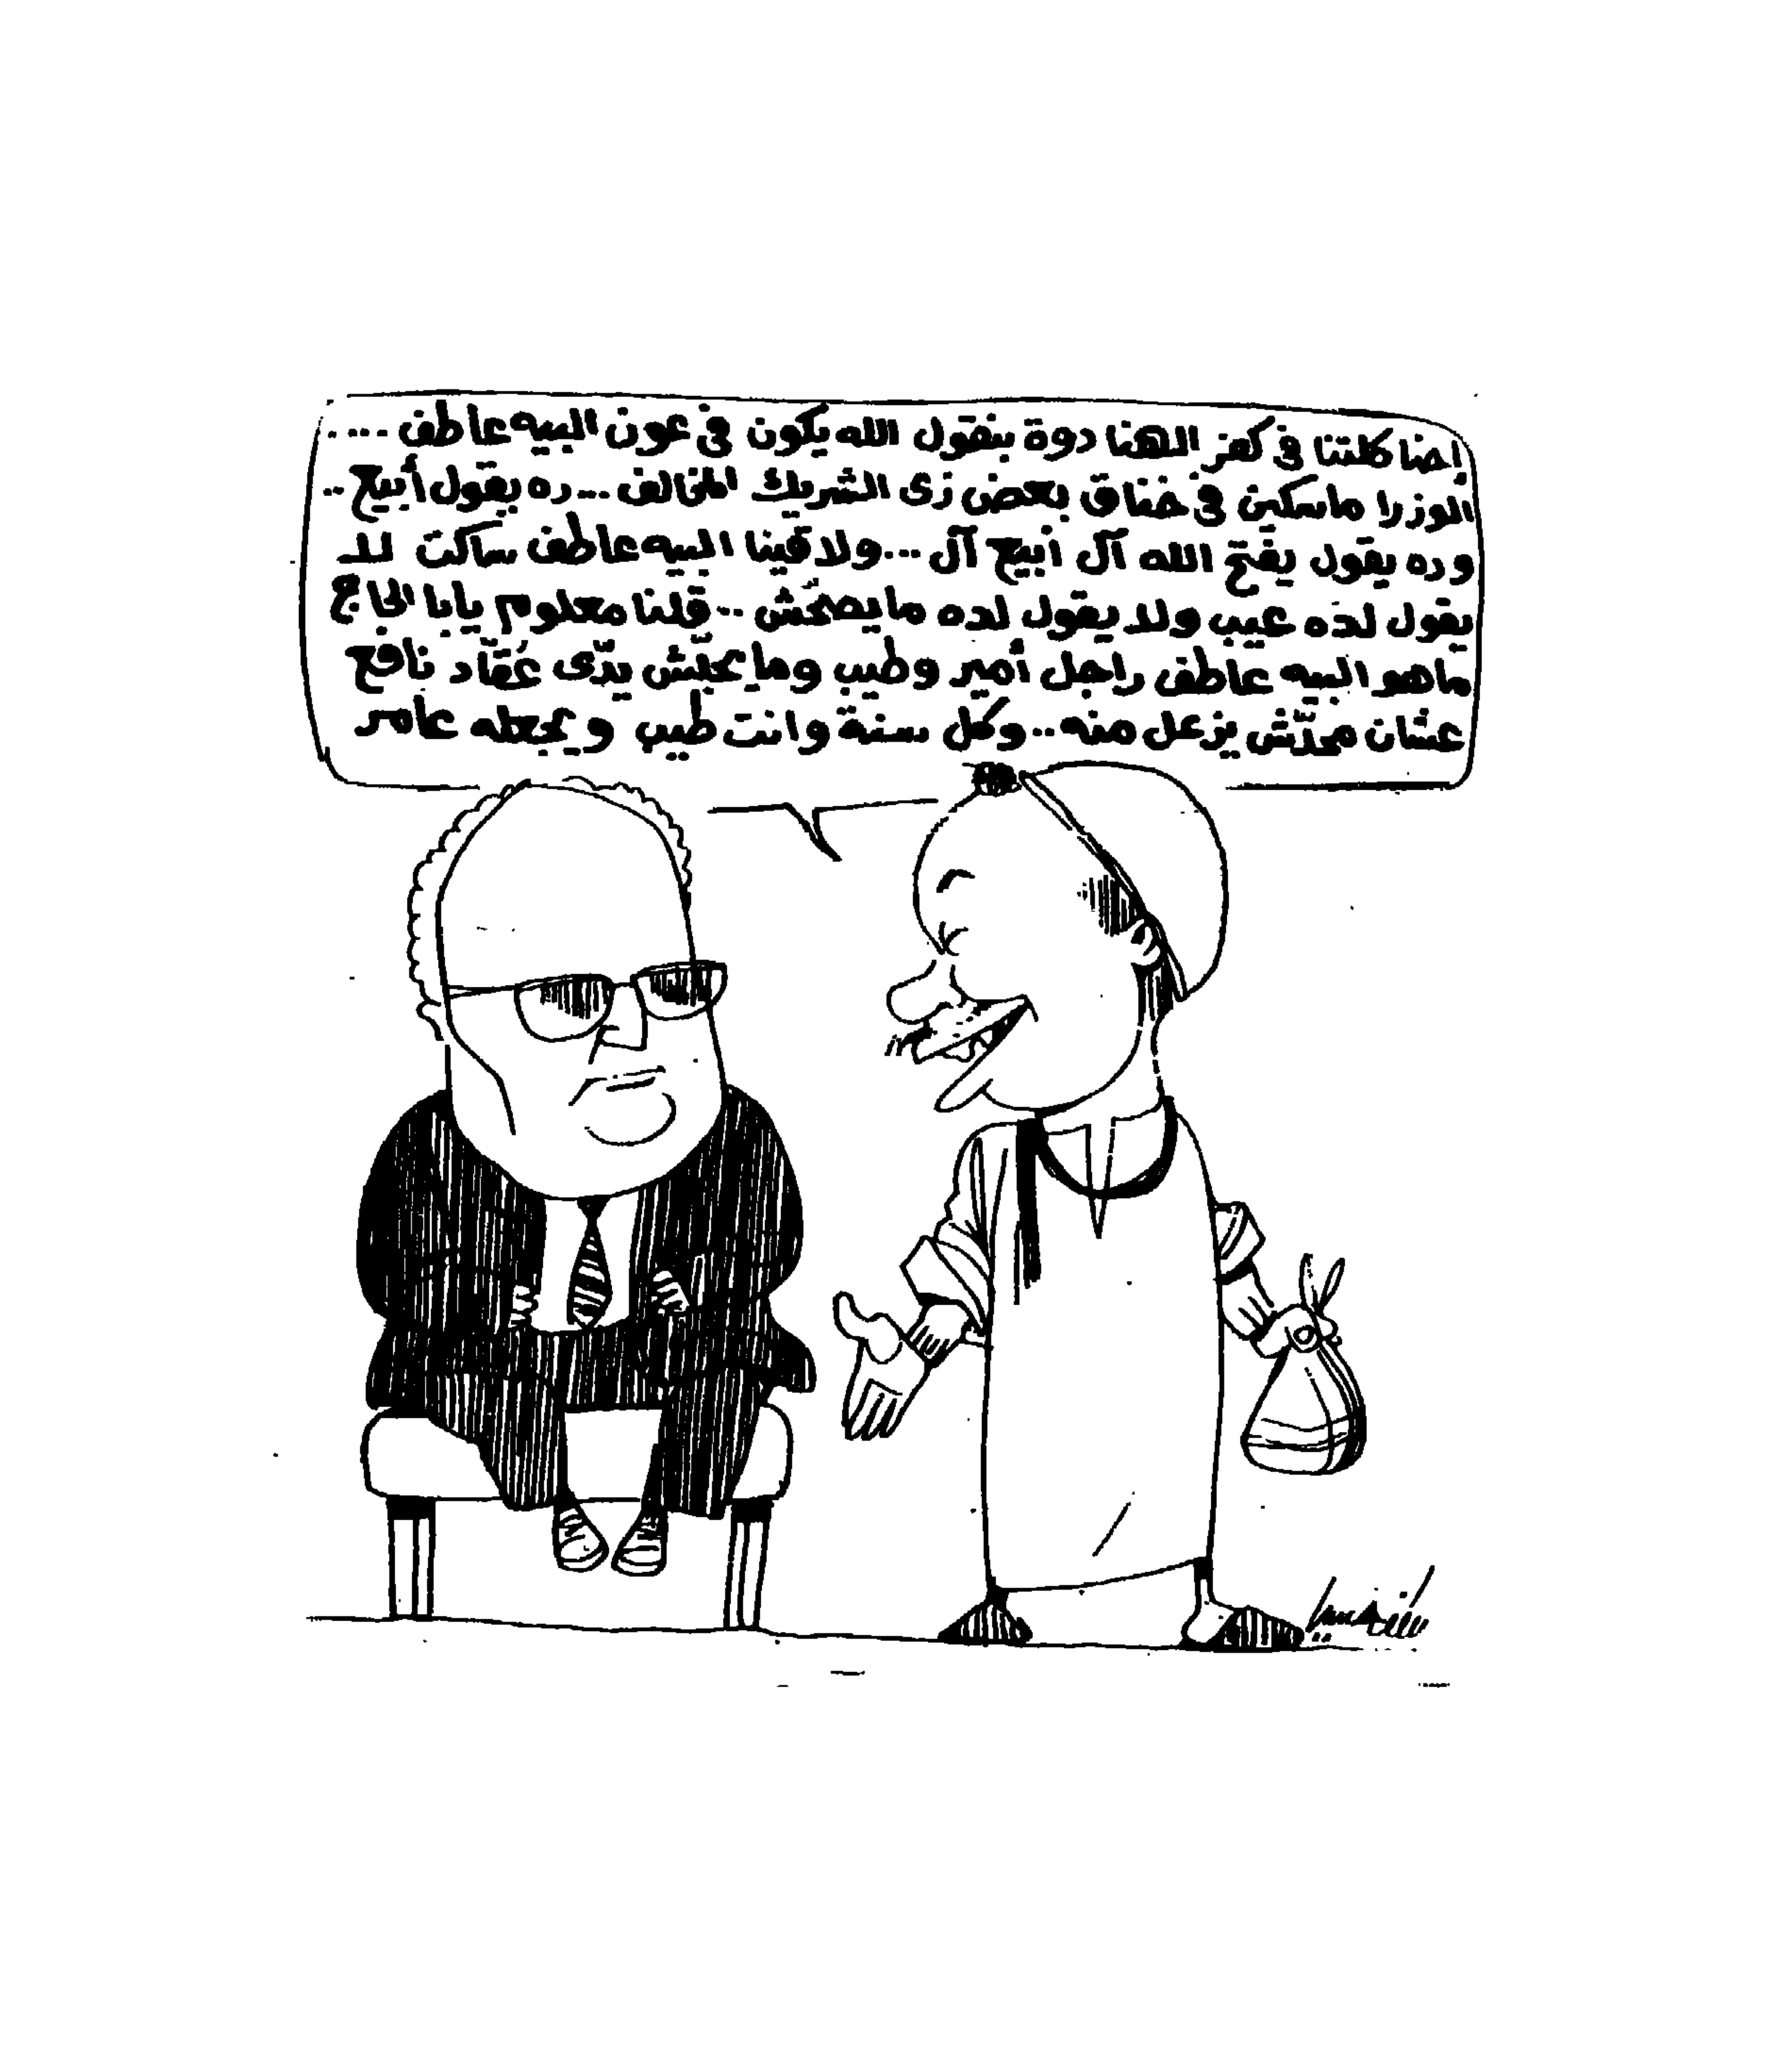 إحنا كلتنا فى كفر الهنا دوة بنقول الله يكون فى عون البيه عاطف ....
الوزرا ماسكين فى خناق بعض زى الشريك المخالف... ده يقول أبيع ..
وده يقول يفتح الله آل أبيع آل ... ولاقينا البيه عاطف ساكت لا
يقول لده عيب ولا يقول لده مايصحش .. قلنا معلوم يابا الحاج
ماهو البيه عاطف راجل أمير وطيب وما يحبش يدّى عُقّاد نافع
عشان محدّش يزعل منه .. وكل سنة وانت طيب ويجعله عامر